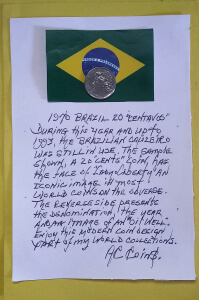 1970 BRAZIL 20 "CENTAVOS"
DURING THIS YEAR AND UP TO
1993, THE BRAZILIAN CRUZEIRO
WAS STILL IN USE. THE SAMPLE
SHOWN, A 20 "CENTS" COIN, HAS
THE FACE OF "LADY LIBERTY" AN
ICONIC IMAGE IN MOST
WORLD COINS ON THE OBVERSE.
THE REVERSE SIDE PRESENTS
THE DENOMINATION, THE YEAR
AND AN IMAGE OF AN OIL WELL.
ENJOY THIS MODERN COIN DESIGN
PART OF MY WORLD COLLECTIONS.
AC Coins